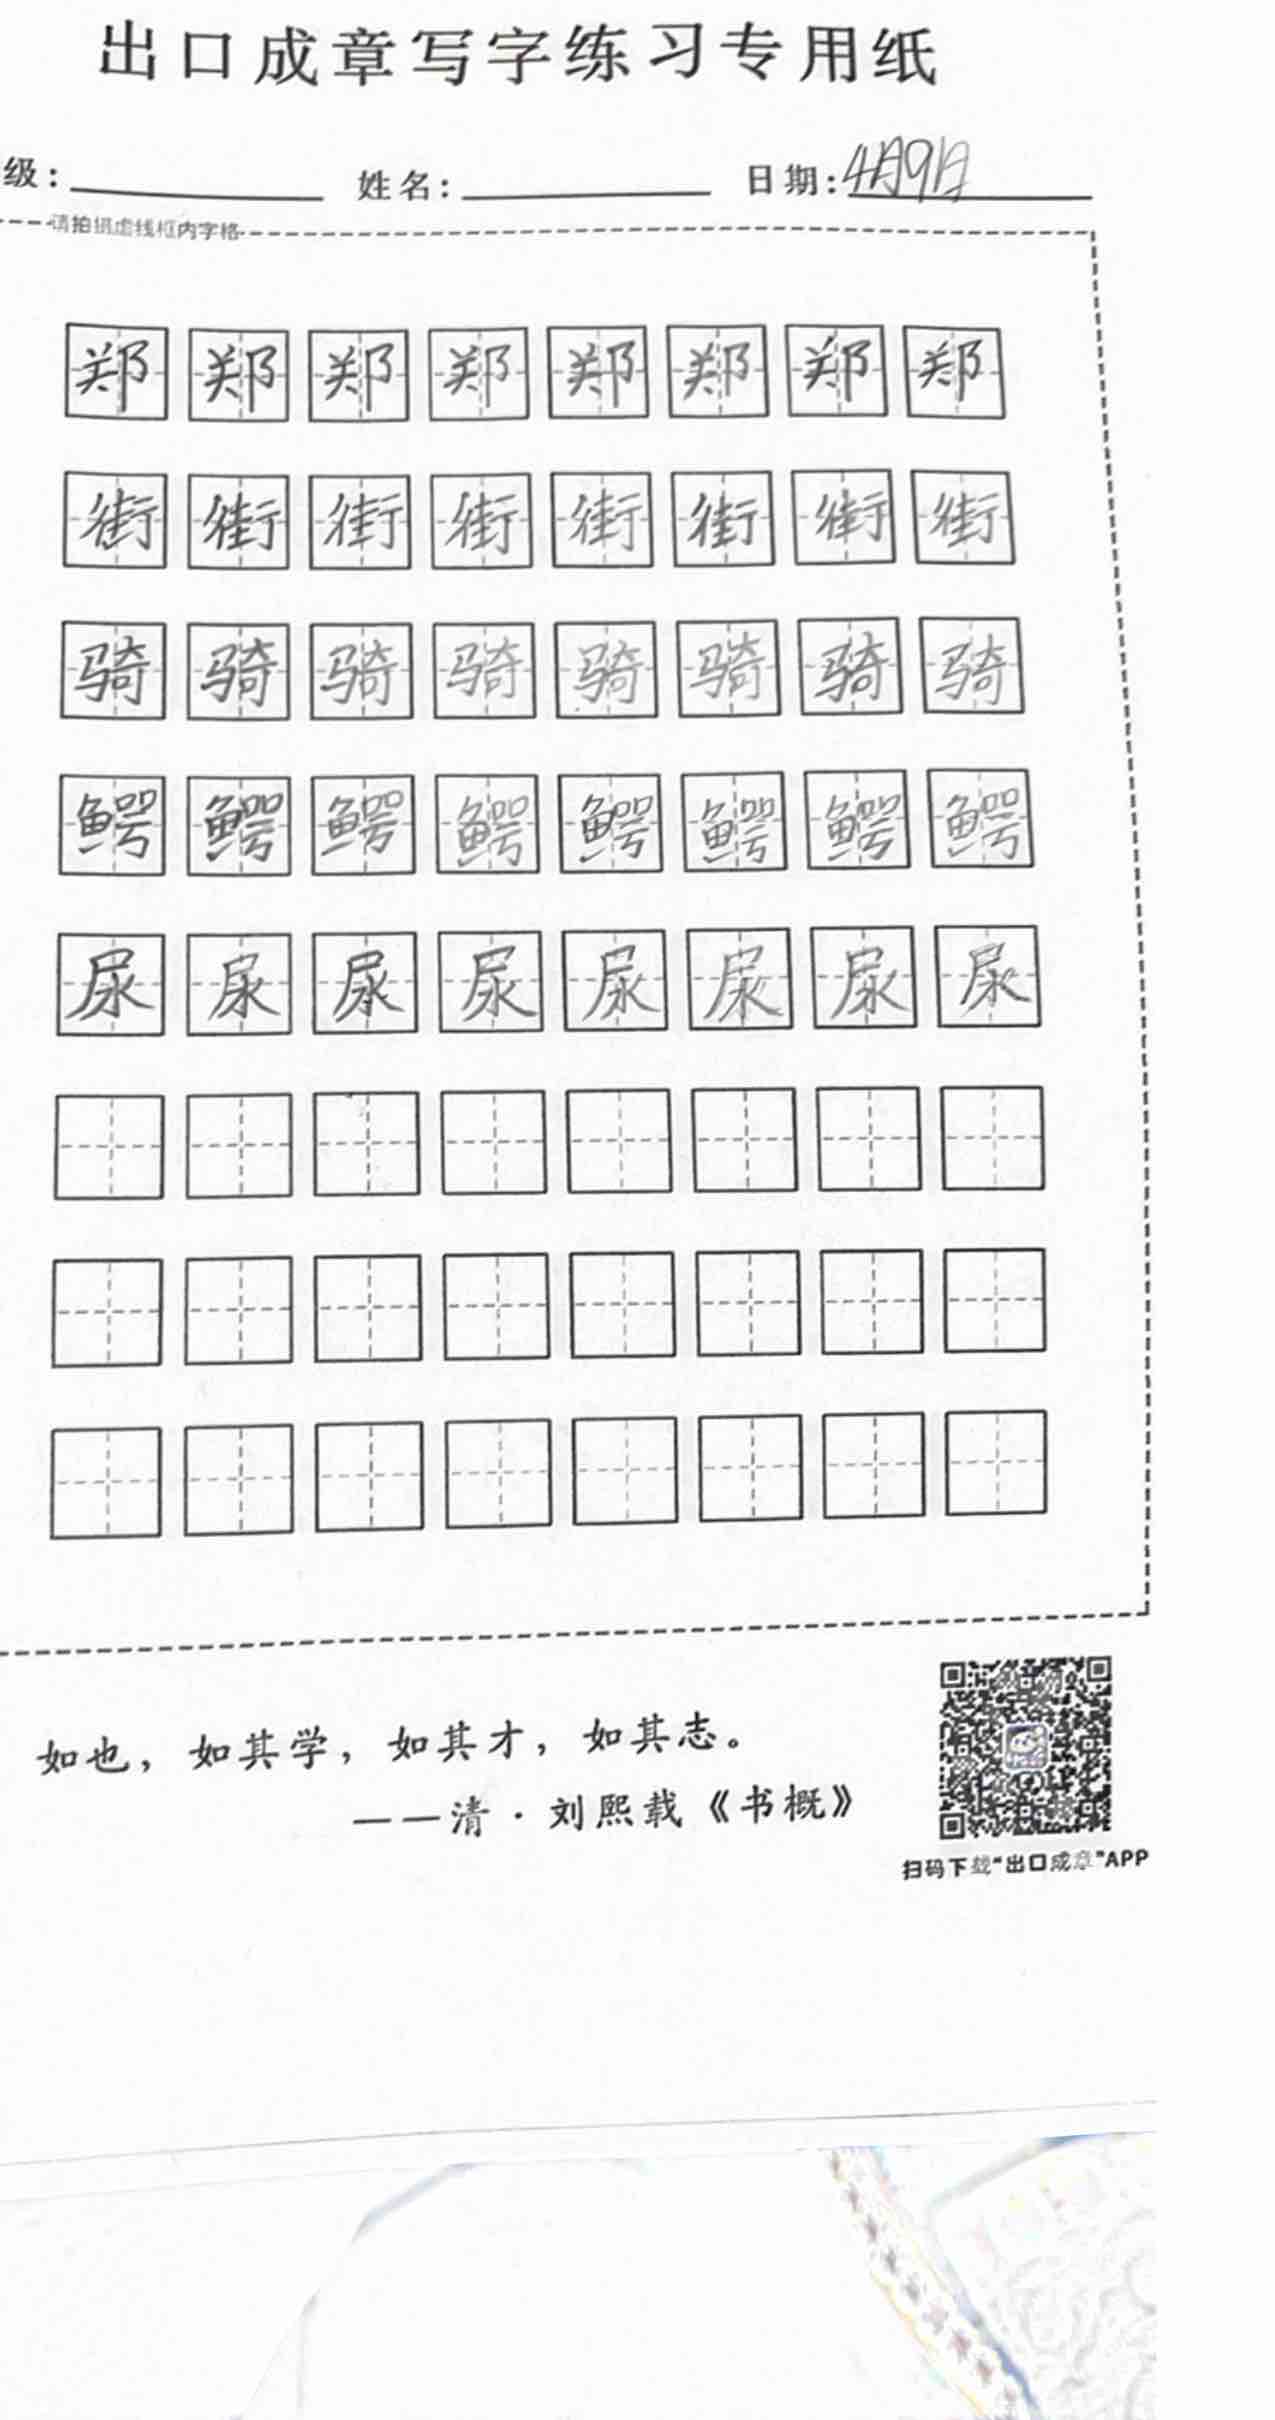 出口成章写字练习专用纸
级: 姓名: 日期:4月9日
请拍摄虚线框内字格
郑 郑 郑 郑 郑 郑 郑 郑
街 街 街 街 街 街 街 街
骑 骑 骑 骑 骑 骑 骑 骑
鳄 鳄 鳄 鳄 鳄 鳄 鳄 鳄
尿 尿 尿 尿 尿 尿 尿 尿
如也，如其学，如其才，如其志。
——清·刘熙载《书概》
扫码下载“出口成章”APP